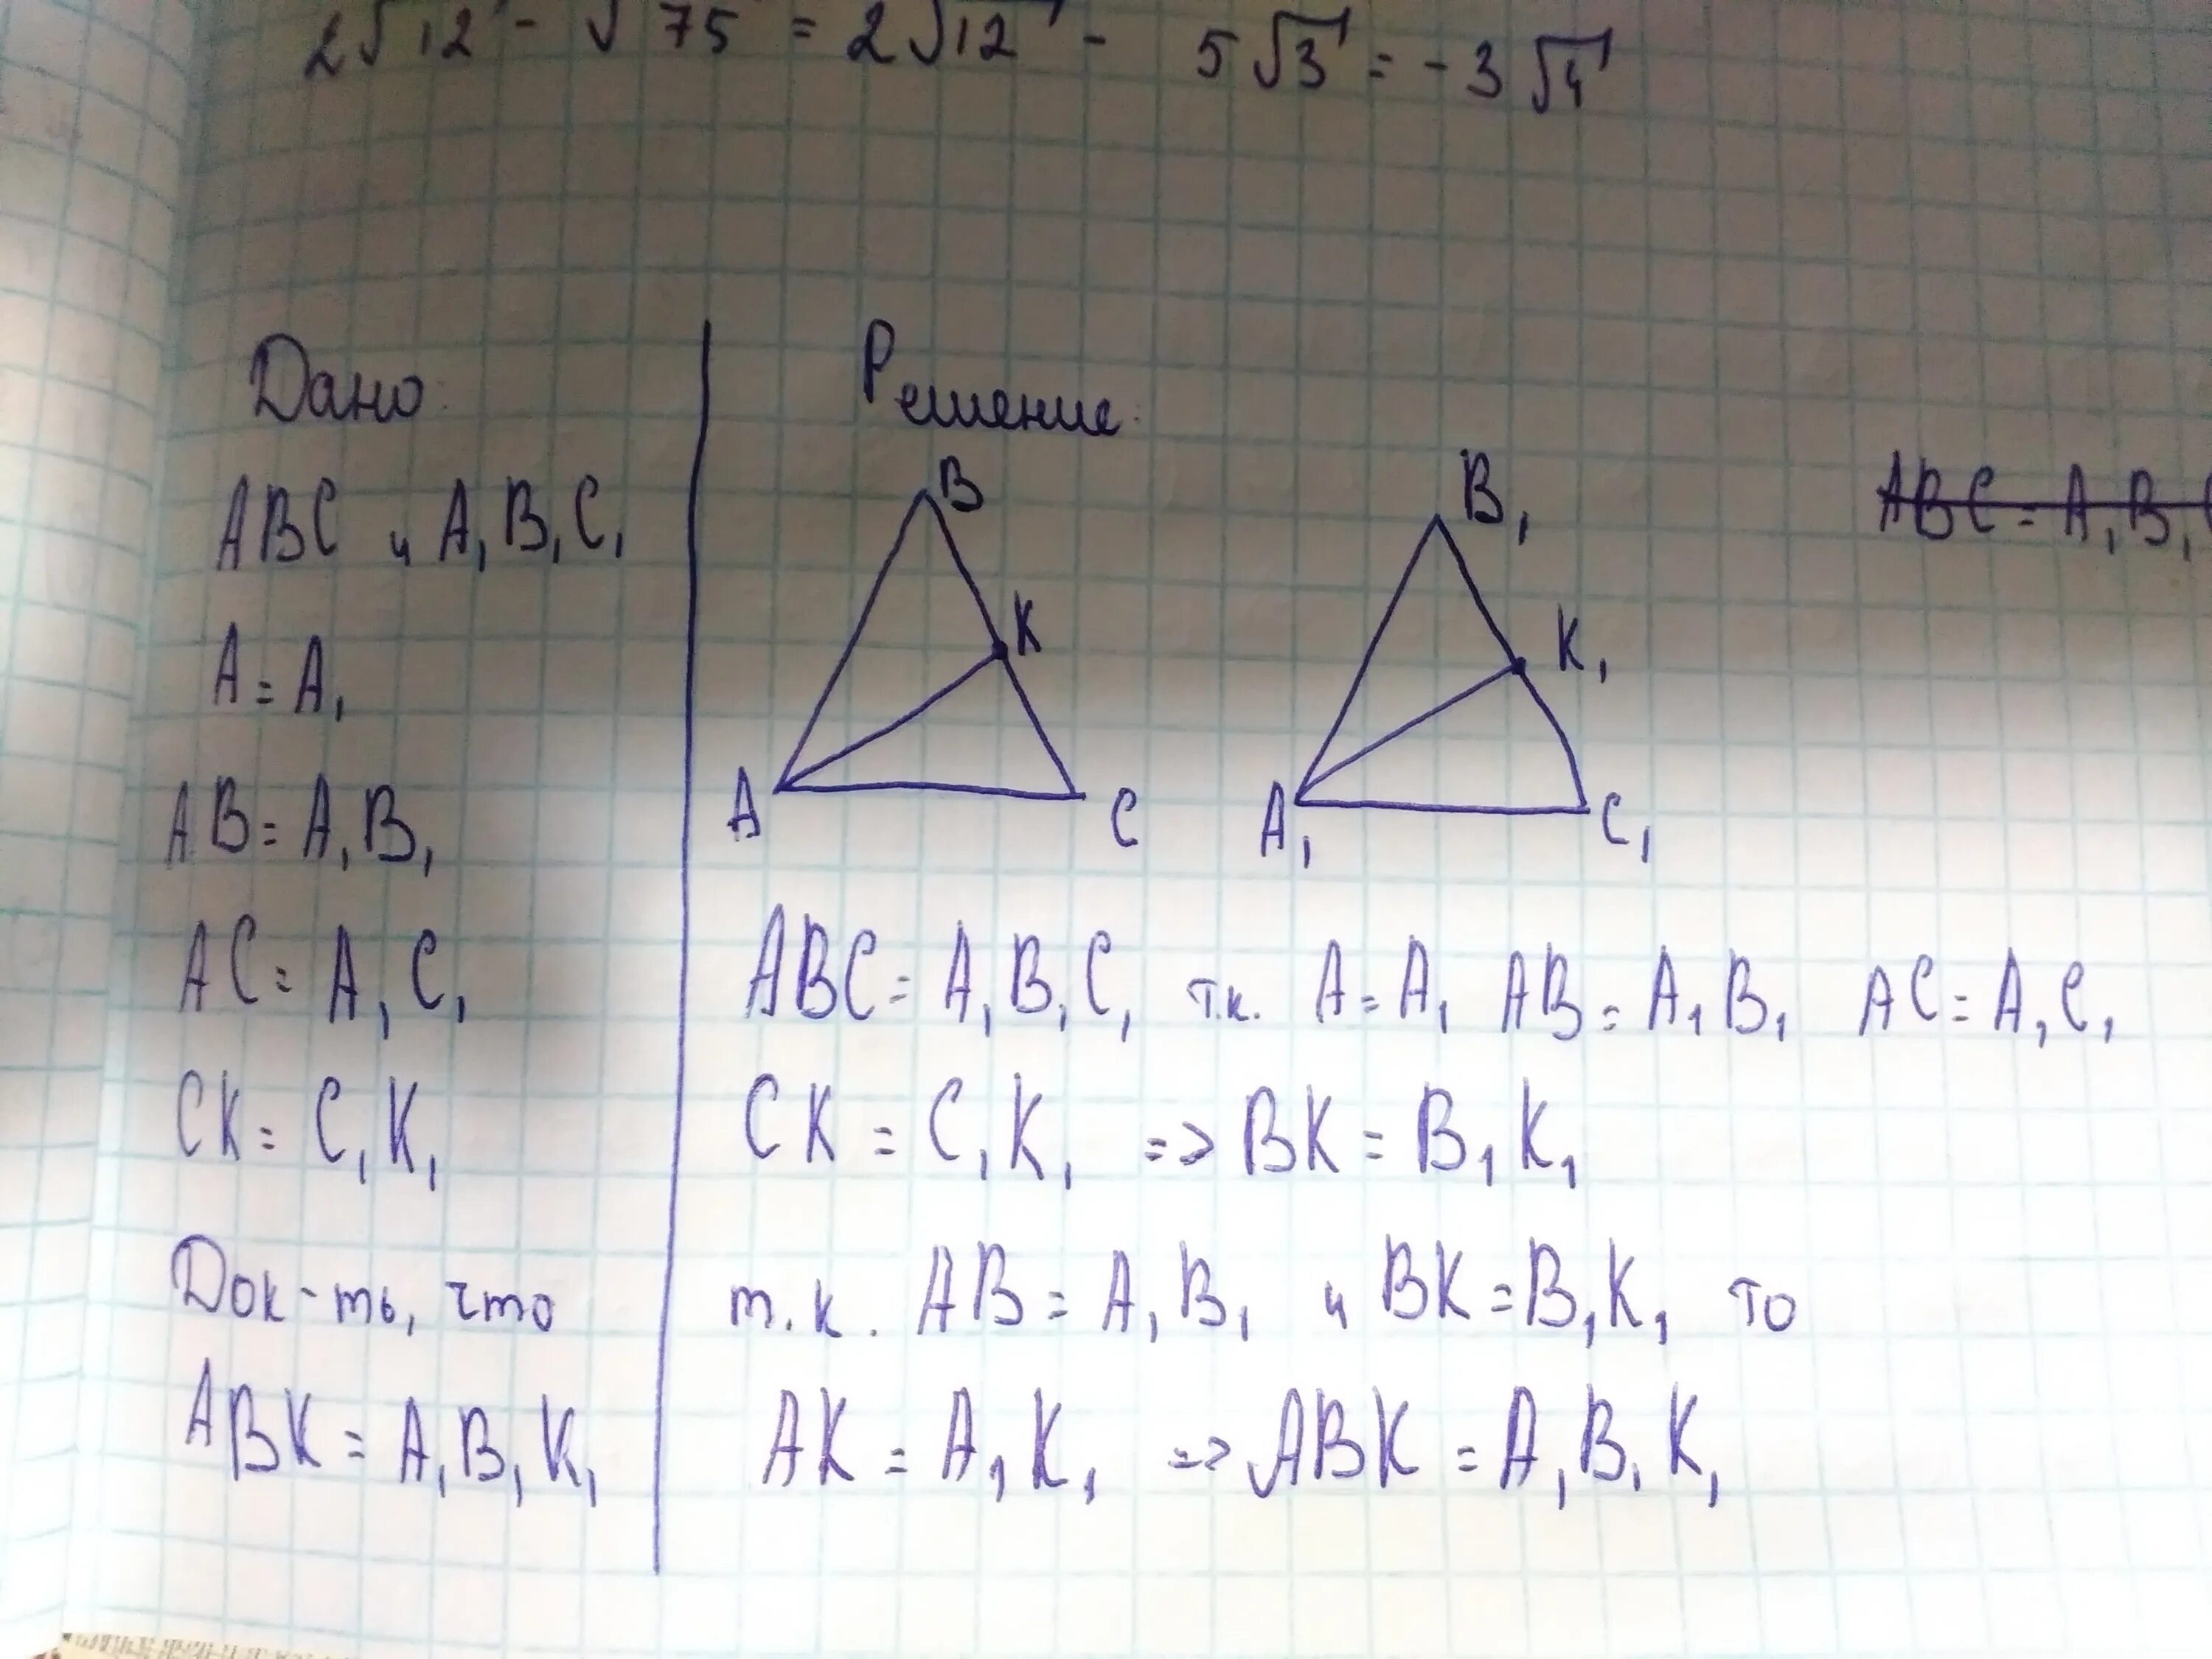 2√12 - √75 = 2√12 - 5√3 = -3√4
Дано:
ABC и A₁B₁C₁
A = A₁
AB = A₁B₁
AC = A₁C₁
CK = C₁K₁
Док-ть, что
ABK = A₁B₁K₁
Решение:
B
K
A
C
B₁
K₁
A₁
C₁
ABC = A₁B₁
ABC = A₁B₁C₁ т.к. A = A₁ AB = A₁B₁ AC = A₁C₁
CK = C₁K₁ => BK = B₁K₁
т.к. AB = A₁B₁ и BK = B₁K₁ то
AK = A₁K₁ => ABK = A₁B₁K₁